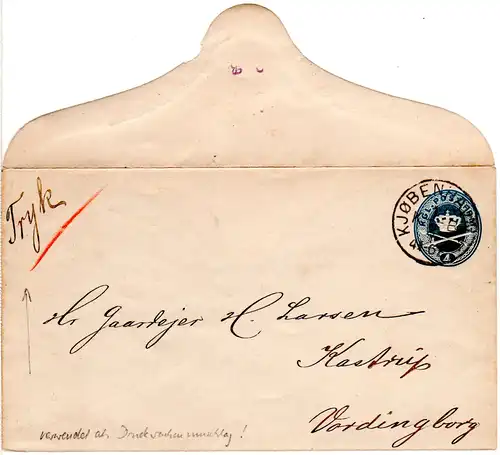 Tryk
KJØBEN
KGL. POST FRM.
4
Hr Gaardejer H. Larsen
Kastrup
Vordingborg
verwendet als Drucksachenumschlag!